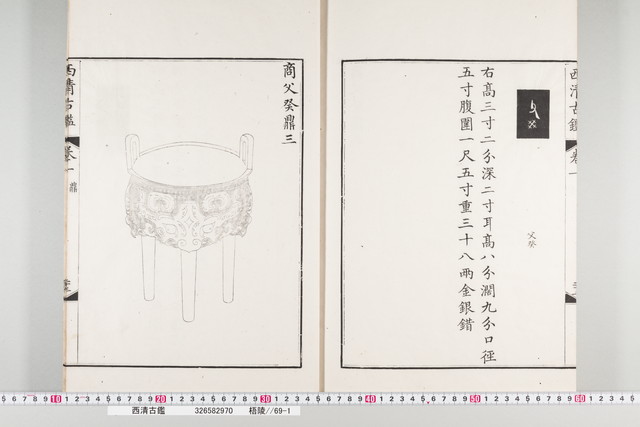 西清古鑑
卷一
父癸
右高三寸二分深二寸耳高八分濶九分口徑
五寸腹圍一尺五寸重三十八兩金銀錯
商父癸鼎三
西清古鑑
卷一
鼎
西清古鑑 326582970 梧陵//69-1